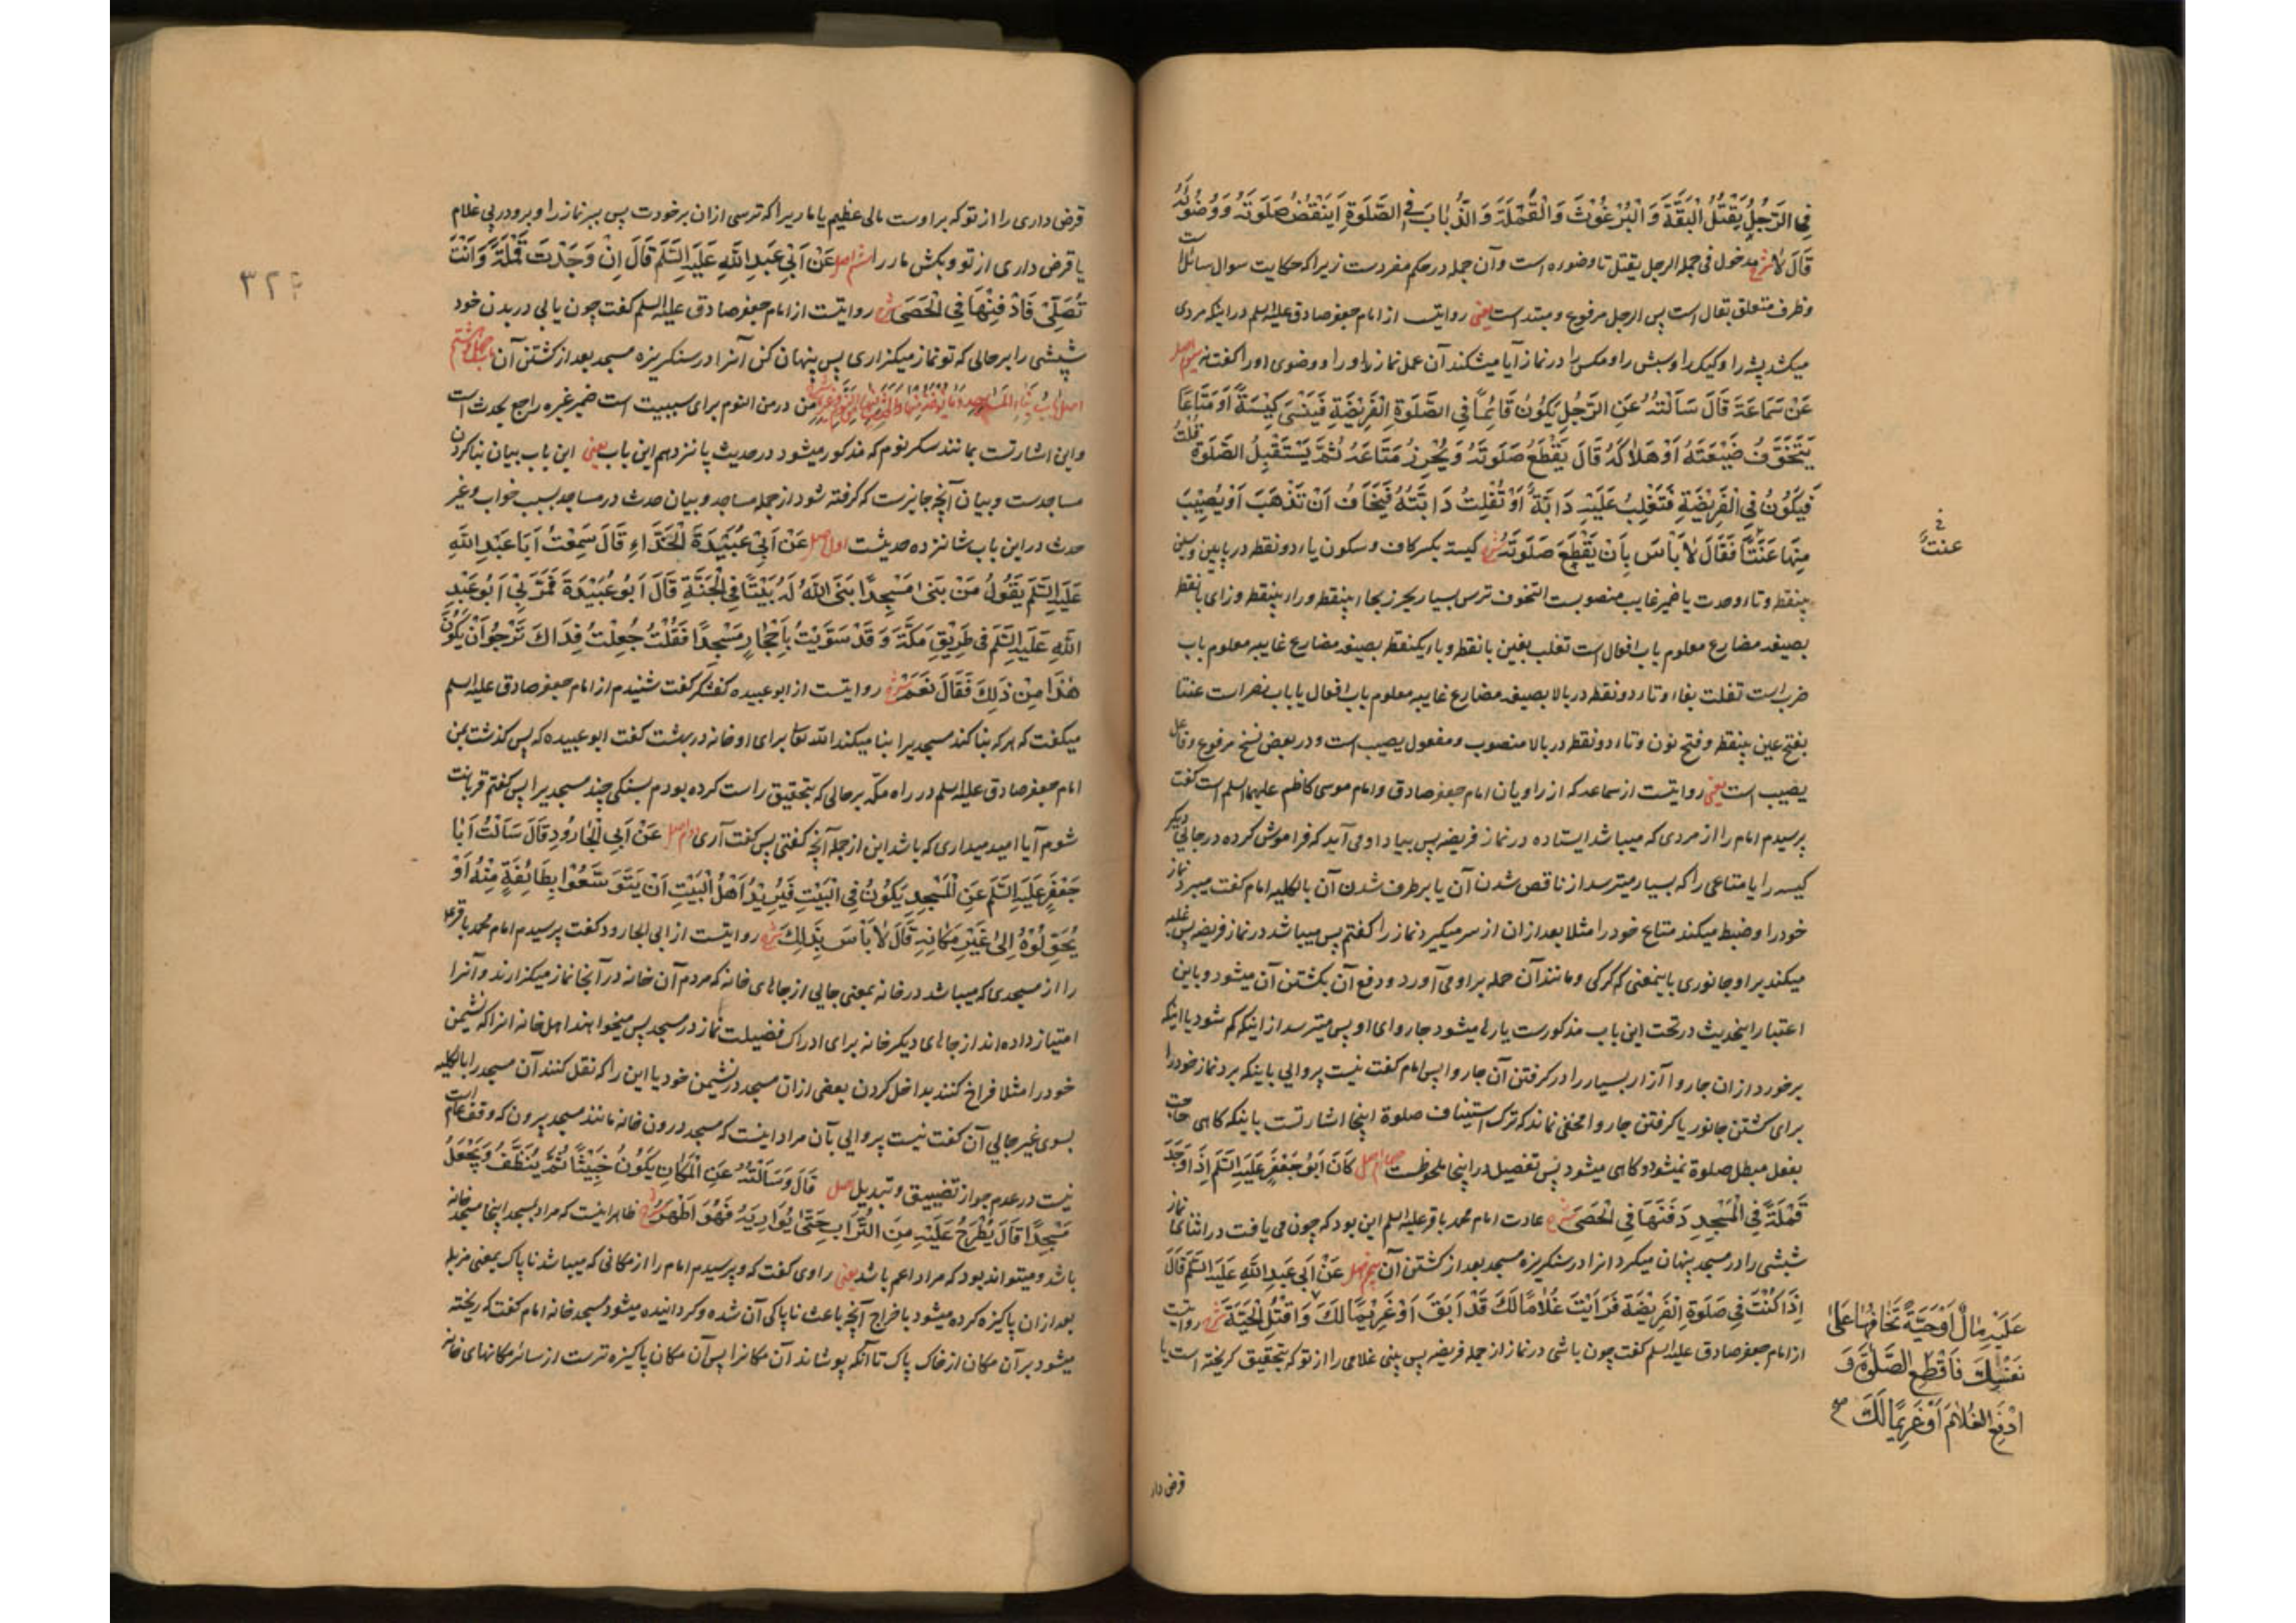 فِي الرَّجُلِ يَقْتُلُ الْبَقَّةَ وَ الْبُرْغُوثَ وَ الْقُمَّلَةَ وَ الذُّبَابَ فِي الصَّلٰوةِ أَيَنْقُضُ صَلٰوتَهُ وَ وُضُوئَهُ
قَالَ لا شرح مدخول فی جمله الرجل یقتل تا وضوءه است و آن جمله در حکم مفردست زیرا که حکایت سوال سائل است
و ظرف متعلق بقال است پس الرجل مرفوع و مبتداست یعنی روایتست از امام جعفر صادق علیه السلم در اینکه مردی
میکشد پشه را و کیک را و سبش را و مکس را در نماز آیا میشکند آن عمل نماز را و را و وضوی او را گفت نه سوم اصل
عَنْ سَمَاعَةَ قَالَ سَأَلْتُهُ عَنِ الرَّجُلِ يَكُونُ قَائِمًا فِي الصَّلٰوةِ الْفَرِيضَةِ فَيَنْسَى كِيسَةً أَوْ مَتَاعًا
يَتَخَوَّفُ ضَيْعَتَهُ أَوْ هَلَاكَهُ قَالَ يَقْطَعُ صَلٰوتَهُ وَ يُحْرِزُ مَتَاعَهُ ثُمَّ يَسْتَقْبِلُ الصَّلٰوةَ قُلْتُ
فَيَكُونُ فِي الْفَرِيضَةِ فَتَغْلِبُ عَلَيْهِ دَابَّةٌ أَوْ تُفْلِتُ دَابَّتُهُ فَيَخَافُ أَنْ تَذْهَبَ أَوْ يُصِيبَ
مِنْهَا عَنَتًا فَقَالَ لَا بَأْسَ بِأَنْ يَقْطَعَ صَلٰوتَهُ شرح کیسة بکسر کاف و سکون یاء دو نقطه در پایین و سین
بینقطه و تاء وحدت یا ضمیر غایب منصوبست التخوف ترس بسیار یحرز بحاء بینقطه و راء بینقطه و زای بانقطه
بصیغه مضارع معلوم باب افعال است تغلب بغین بانقطه و باء یکنقطه بصیغه مضارع غایبه معلوم باب
ضرب است تفلت بفاء و تاء دو نقطه در بالا بصیغه مضارع غایبه معلوم باب افعال یا باب نصر است عنتا
بفتح عین بینقطه و فتح نون و تاء دو نقطه در بالا منصوب و مفعول یصیب است و در بعض نسخ مرفوع و فاعل
یصیب است یعنی روایتست از سماعه که از راویان امام جعفر صادق و امام موسی کاظم علیهما السلم است گفت
پرسیدم امام را از مردی که میباشد ایستاده در نماز فریضه پس بیاد او می آید که فراموش کرده در جایی دیگر
کیسه را یا متاعی را که بسیار میترسد از ناقص شدن آن یا برطرف شدن آن بالکلیه امام گفت میبرد نماز
خود را و ضبط میکند متاع خود را مثلا بعد از ان از سر میگیرد نماز را گفتم پس میباشد در نماز فریضه پس غلبه
میکند بر او جانوری باینمعنی که گرگی و مانند آن حمله بر او می آورد و دفع آن بکشتن آن میشود و باین
اعتبار اینحدیث در تحت این باب مذکورست یا رها میشود چاروای او پس میترسد از اینکه کم شود یا اینکه
برخورد از ان چاروا آزار بسیار را در گرفتن آن چاروا پس امام گفت نیست پروایی باینکه برد نماز خود را
برای کشتن جانور یا گرفتن چاروا مخفی نماند که ترک استیناف صلوة اینجا اشارتست باینکه گاهی حاجت
بفعل مبطل صلوة نمیشود و گاهی میشود پس تفصیل در اینجا ملحوظست چهارم اصل كَانَ أَبُو جَعْفَرٍ عَلَيْهِ السَّلَمُ إِذَا وَجَدَ
قَمْلَةً فِي الْمَسْجِدِ دَفَنَهَا فِي الْحَصَى شرح عادت امام محمد باقر علیه السلم این بود که چون می یافت در اثنای نماز
شبشی را در مسجد پنهان میکرد انرا در سنگریزه مسجد بعد از کشتن آن پنجم اصل عَنْ أَبِي عَبْدِ اللّٰهِ عَلَيْهِ السَّلَمُ قَالَ
إِذَا كُنْتَ فِي صَلٰوةِ الْفَرِيضَةِ فَرَأَيْتَ غُلَامًا لَكَ قَدْ أَبَقَ أَوْ غَرِيمًا لَكَ وَ اقْتُلِ الْحَيَّةَ شرح روایتست
از امام جعفر صادق علیه السلم گفت چون باشی در نماز از جمله فریضه پس بینی غلامی را از تو که بتحقیق گریخته است یا
فی
عنت
عَلَيْهِ مَالٌ أَوْ حَيَّةً تَخَافُهَا عَلَى
نَفْسِكَ فَاقْطَعِ الصَّلٰوةَ وَ
ادْفَعِ الْغُلَامَ أَوْ غَرِيمًا لَكَ صح
قرض دار
قرض داری را از تو که بر اوست مالی عظیم یا ماریرا که ترسی از ان بر خودت پس ببر نماز را و برو در پی غلام
یا قرض داری از تو و بکش مار را ششم اصل عَنْ أَبِي عَبْدِ اللّٰهِ عَلَيْهِ السَّلَمُ قَالَ إِنْ وَجَدْتَ قَمْلَةً وَ أَنْتَ
تُصَلِّي فَادْفِنْهَا فِي الْحَصَى شرح روایتست از امام جعفر صادق علیه السلم گفت چون یابی در بدن خود
شپشی را بر حالی که تو نماز میگزاری پس پنهان کن آنرا در سنگریزه مسجد بعد از کشتن آن باب چهل و هشتم
اصل بَابُ بِنَاءِ الْمَسَاجِدِ وَ مَا يُؤْخَذُ مِنْهَا وَ الْحَدَثِ فِيهَا مِنَ النَّوْمِ وَ غَيْرِهِ شرح من در من النوم برای سببیت است ضمیر غیره راجع بحدث است
و این اشارتست بمانند سکر نوم که مذکور میشود در حدیث پانزدهم این باب یعنی این باب بیان بنا کردن
مساجدست و بیان آنچه جایزست که گرفته شود از جمله مساجد و بیان حدث در مساجد بسبب خواب و غیر
حدث در این باب شانزده حدیثست اول اصل عَنْ أَبِي عُبَيْدَةَ الْحَذَّاءِ قَالَ سَمِعْتُ أَبَا عَبْدِ اللّٰهِ
عَلَيْهِ السَّلَمُ يَقُولُ مَنْ بَنَى مَسْجِدًا بَنَى اللّٰهُ لَهُ بَيْتًا فِي الْجَنَّةِ قَالَ أَبُو عُبَيْدَةَ فَمَرَّ بِي أَبُو عَبْدِ
اللّٰهِ عَلَيْهِ السَّلَمُ فِي طَرِيقِ مَكَّةَ وَ قَدْ سَوَّيْتُ بِأَحْجَارٍ مَسْجِدًا فَقُلْتُ جُعِلْتُ فِدَاكَ تَرْجُو أَنْ يَكُونَ
هٰذَا مِنْ ذٰلِكَ فَقَالَ نَعَمْ شرح روایتست از ابو عبیده کفشگر گفت شنیدم از امام جعفر صادق علیه السلم
میگفت که هر که بنا کند مسجدیرا بنا میکند الله تعا برای او خانه در بهشت گفت ابو عبیده که پس گذشت بمن
امام جعفر صادق علیه السلم در راه مکّه بر حالی که بتحقیق راست کرده بودم بسنگی چند مسجدیرا پس گفتم قربانت
شوم آیا امید میداری که باشد این از جمله آنچه گفتی پس گفت آری دوم اصل عَنْ أَبِي الْجَارُودِ قَالَ سَأَلْتُ أَبَا
جَعْفَرٍ عَلَيْهِ السَّلَمُ عَنِ الْمَسْجِدِ يَكُونُ فِي الْبَيْتِ فَيُرِيدُ أَهْلُ الْبَيْتِ أَنْ يَتَوَسَّعُوا بِطَائِفَةٍ مِنْهُ أَوْ
يُحَوِّلُوهُ إِلٰى غَيْرِ مَكَانِهِ قَالَ لَا بَأْسَ بِذٰلِكَ شرح روایتست از ابی الجارود گفت پرسیدم امام محمد باقر ع
را از مسجدی که میباشد در خانه بمعنی جایی از جاهای خانه که مردم آن خانه در آنجا نماز میگزارند و آنرا
امتیاز داده اند از جاهای دیگر خانه برای ادراک فضیلت نماز در مسجد پس میخواهند اهل خانه انرا که نشیمن
خود را مثلا فراخ کنند بداخل کردن بعضی از ان مسجد در نشیمن خود یا این را که نقل کنند آن مسجد را بالکلیه
بسوی غیر جایی آن گفت نیست پروایی بآن مراد اینست که مسجد درون خانه مانند مسجد بیرون که وقف عام است
نیست در عدم جواز تضییق و تبدیل اصل قَالَ وَ سَأَلْتُهُ عَنِ الْمَكَانِ يَكُونُ خَبِيثًا ثُمَّ يُنَظَّفُ وَ يُجْعَلُ
مَسْجِدًا قَالَ يُطْرَحُ عَلَيْهِ مِنَ التُّرَابِ حَتّٰى يُوَارِيَهُ فَهُوَ أَطْهَرُ شرح ظاهر اینست که مراد بمسجد اینجا مسجد خانه
باشد و میتواند بود که مراد اعم باشد یعنی راوی گفت که و پرسیدم امام را از مکانی که میباشد ناپاک بمعنی مزبله
بعد از ان پاکیزه کرده میشود باخراج آنچه باعث ناپاکی آن شده و گردانیده میشود مسجد خانه امام گفت که ریخته
میشود بر آن مکان از خاک پاک تا آنکه پوشاند آن مکانرا پس آن مکان پاکیزه ترست از سائر مکانهای خانه